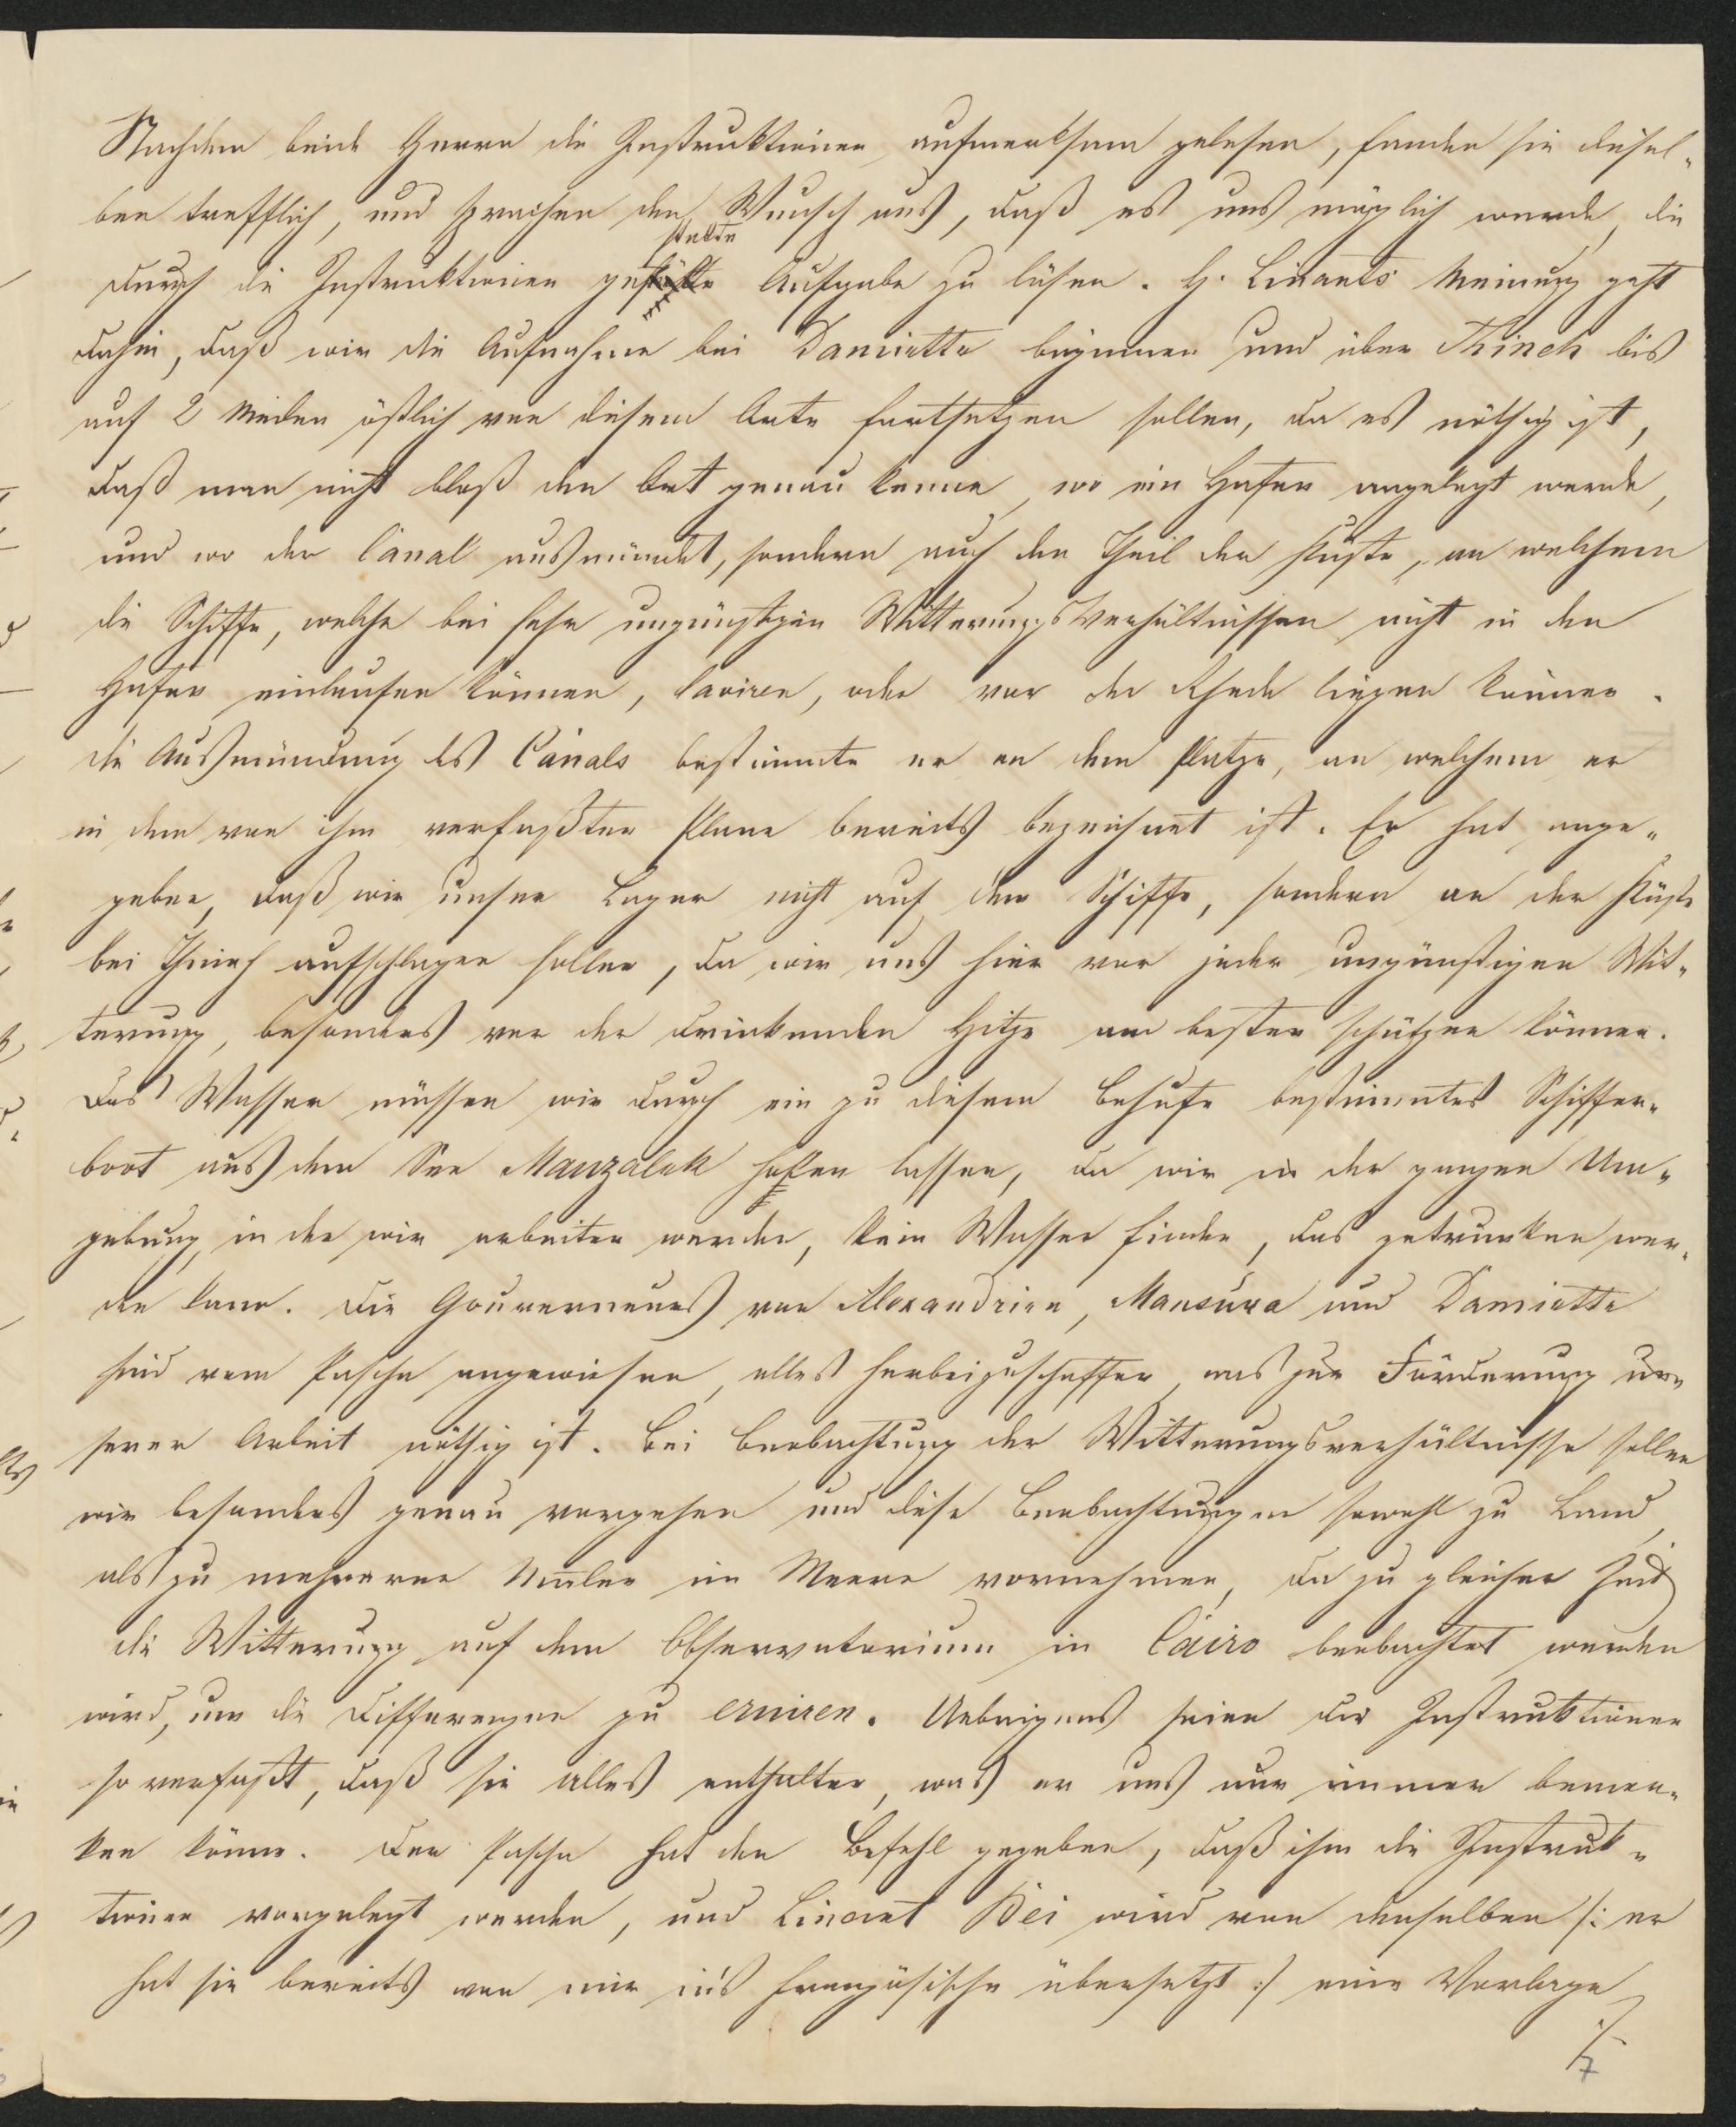 Nachdem beide Herrn die Instruktionen aufmerksam gelesen, fanden sie diesel-
ben trefflich, und sprachen den Wunsch aus, daß es uns möglich werde, die
durch die Instruktionen gestellte Aufgabe zu lösen. H. Linants Meinung geht
dahin, daß wir die Aufnahme bei Damiette beginnen und über Thineh bis
auf 2 Meilen östlich von diesem Orte fortsetzen sollen, da es nöthig ist,
daß man nicht bloß den Ort genau kenne, wo ein Hafen angelegt werde,
und wo der Canal ausmündet, sondern auch den Theil der Küste, an welchem
die Schiffe, welche bei sehr ungünstigen Witterungsverhältnissen nicht in den
Hafen einlaufen können, laviren, oder vor der Rhede liegen können.
die Ausmündung des Canals bestimmte er an dem Platze, an welchem er
in dem von ihm verfaßten Plane bereits bezeichnet ist. Er hat ange-
geben, daß wir unser Lager nicht auf dem Schiffe, sondern an der Küste
bei Thineh aufschlagen sollen, da wir uns hier vor jeder ungünstigen Wit-
terung, besonders vor der drückenden Hitze am besten schützen können.
Das Wasser müssen wir durch ein zu diesem Behufe bestimmtes Schiffer-
boot aus dem See Manzaleh hohlen lassen, da wir in der ganzen Um-
gebung, in der wir arbeiten werden, kein Wasser finden, das getrunken wer-
den kann. Die Gouverneurs von Alexandrien, Mansura und Damiette
sind vom Pascha angewiesen, alles herbeizuschaffen, was zur Förderung un-
serer Arbeit nöthig ist. Bei Beobachtung der Witterungsverhältnisse sollen
wir besonders genau vorgehen und diese Beobachtungen sowohl zu Land,
als zu mehreren Malen im Meere vornehmen, da zu gleicher Zeit
die Witterung auf dem Observatorium in Cairo beobachtet werden
wird, um die Differenzen zu eruiren. Uebrigens seien die Instruktionen
so verfaßt, daß sie alles enthalten, was er uns nur immer bemer-
ken könne. Der Pascha hat den Befehl gegeben, daß ihm die Instruk-
tionen vorgelegt werden, und Linant Bei wird von denselben /: er
hat sie bereits von mir in's französische übersetzt :/ eine Vorlage
./.
7